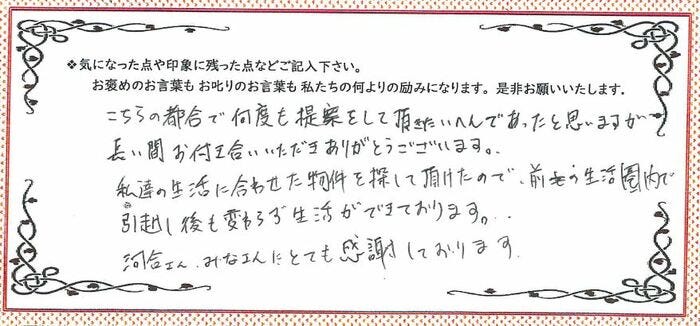 ❖気になった点や印象に残った点などご記入下さい。
お褒めのお言葉も お叱りのお言葉も 私たちの何よりの励みになります。是非お願いいたします.
こちらの都合で何度も提案をして頂きたいへんであったと思いますが
長い間お付き合いいただきありがとうございます。
私達の生活に合わせた物件を探して頂けたので、前の生活圏内で
引越し後も変わらず生活ができております。
河合さん、みなさんにとても感謝しております